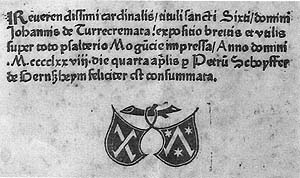 Reuerendissimi cardinalis/tituli sancti Sixti/domini
Iohannis de Turrecremata/expositio breuis et vtilis
super toto psalterio Mogūcie impressa/Anno domini
.M.cccclxxviii.die quarta ap̃lis p Petrū Schoyffer
de Gernsʒheym feliciter est consummata.